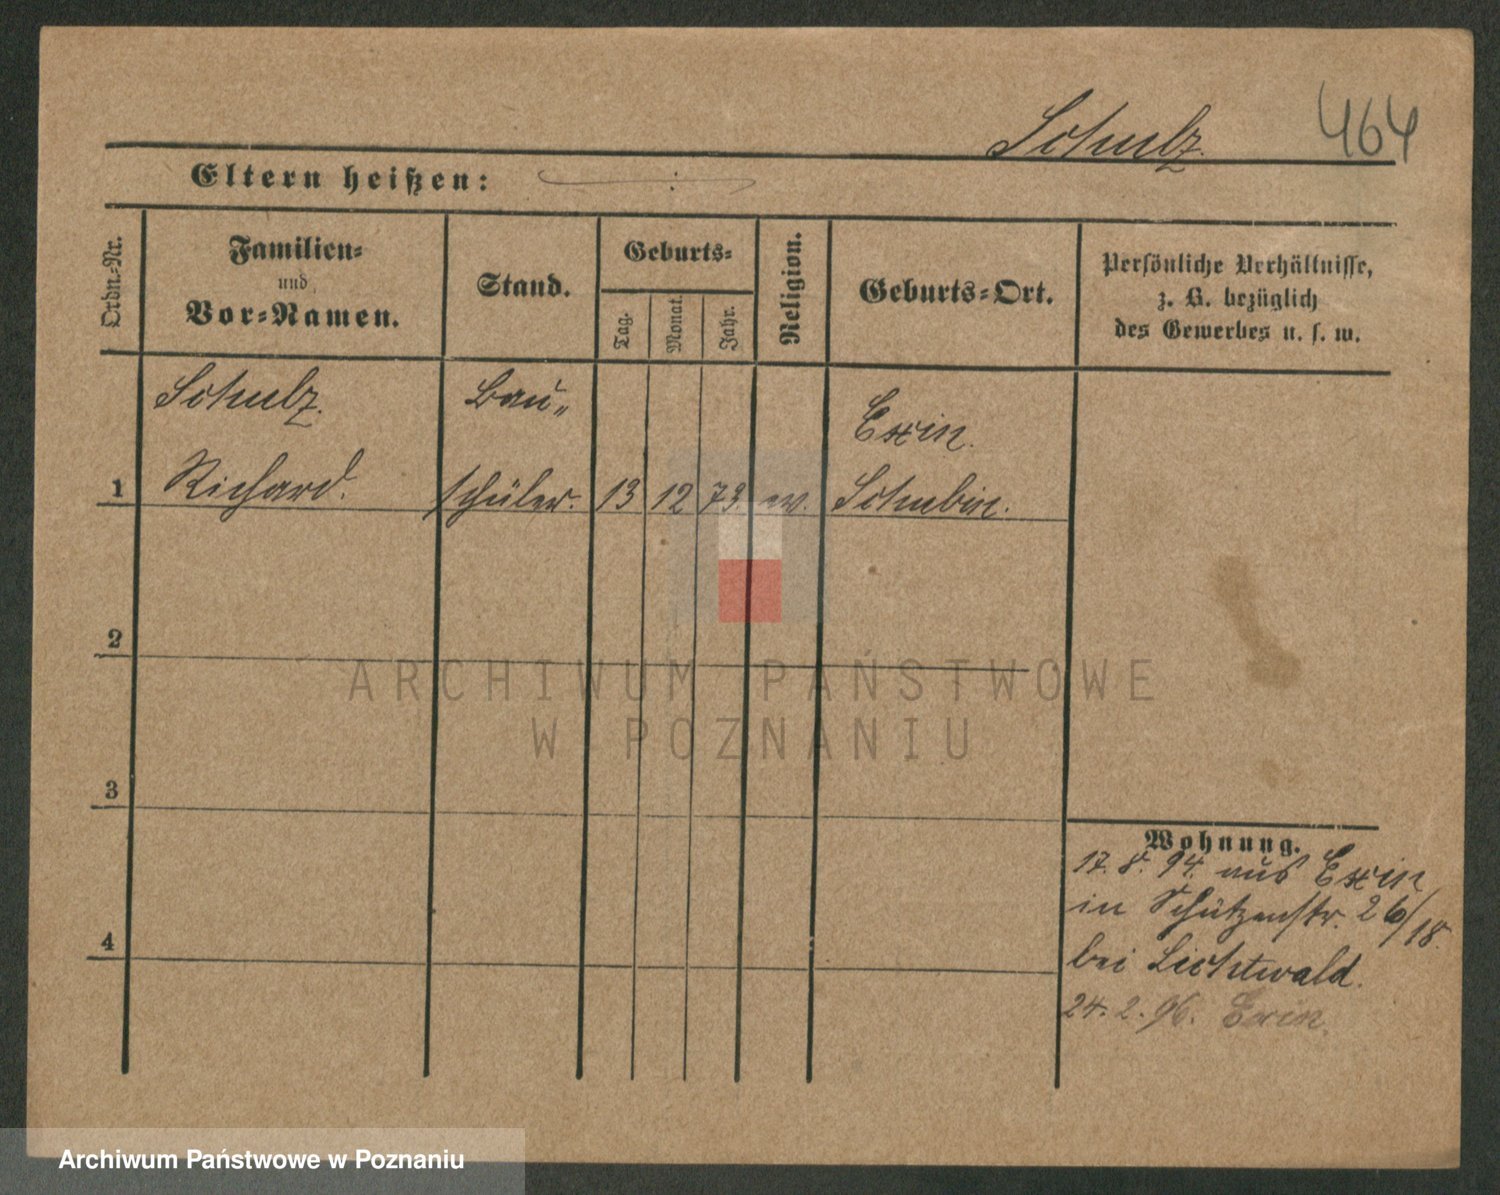 Schulz.
464
Eltern heißen:
Ordn.-Nr.
Familien-
und
Vor-Namen.
Stand.
Geburts-
Tag.
Monat.
Jahr.
Religion.
Geburts-Ort.
Persönliche Verhältnisse,
z. B. bezüglich
des Gewerbes u. s. w.
Schulz. Bau-
Exin.
1 Richard. schüler. 13 12 73. ev. Schubin.
2
3
4
Wohnung.
17. 8. 94. aus Exin
in Schützenstr. 26/18.
bei Lichtwald.
24. 2. 96. Exin.
ARCHIWUM PAŃSTWOWE
W POZNANIU
Archiwum Państwowe w Poznaniu